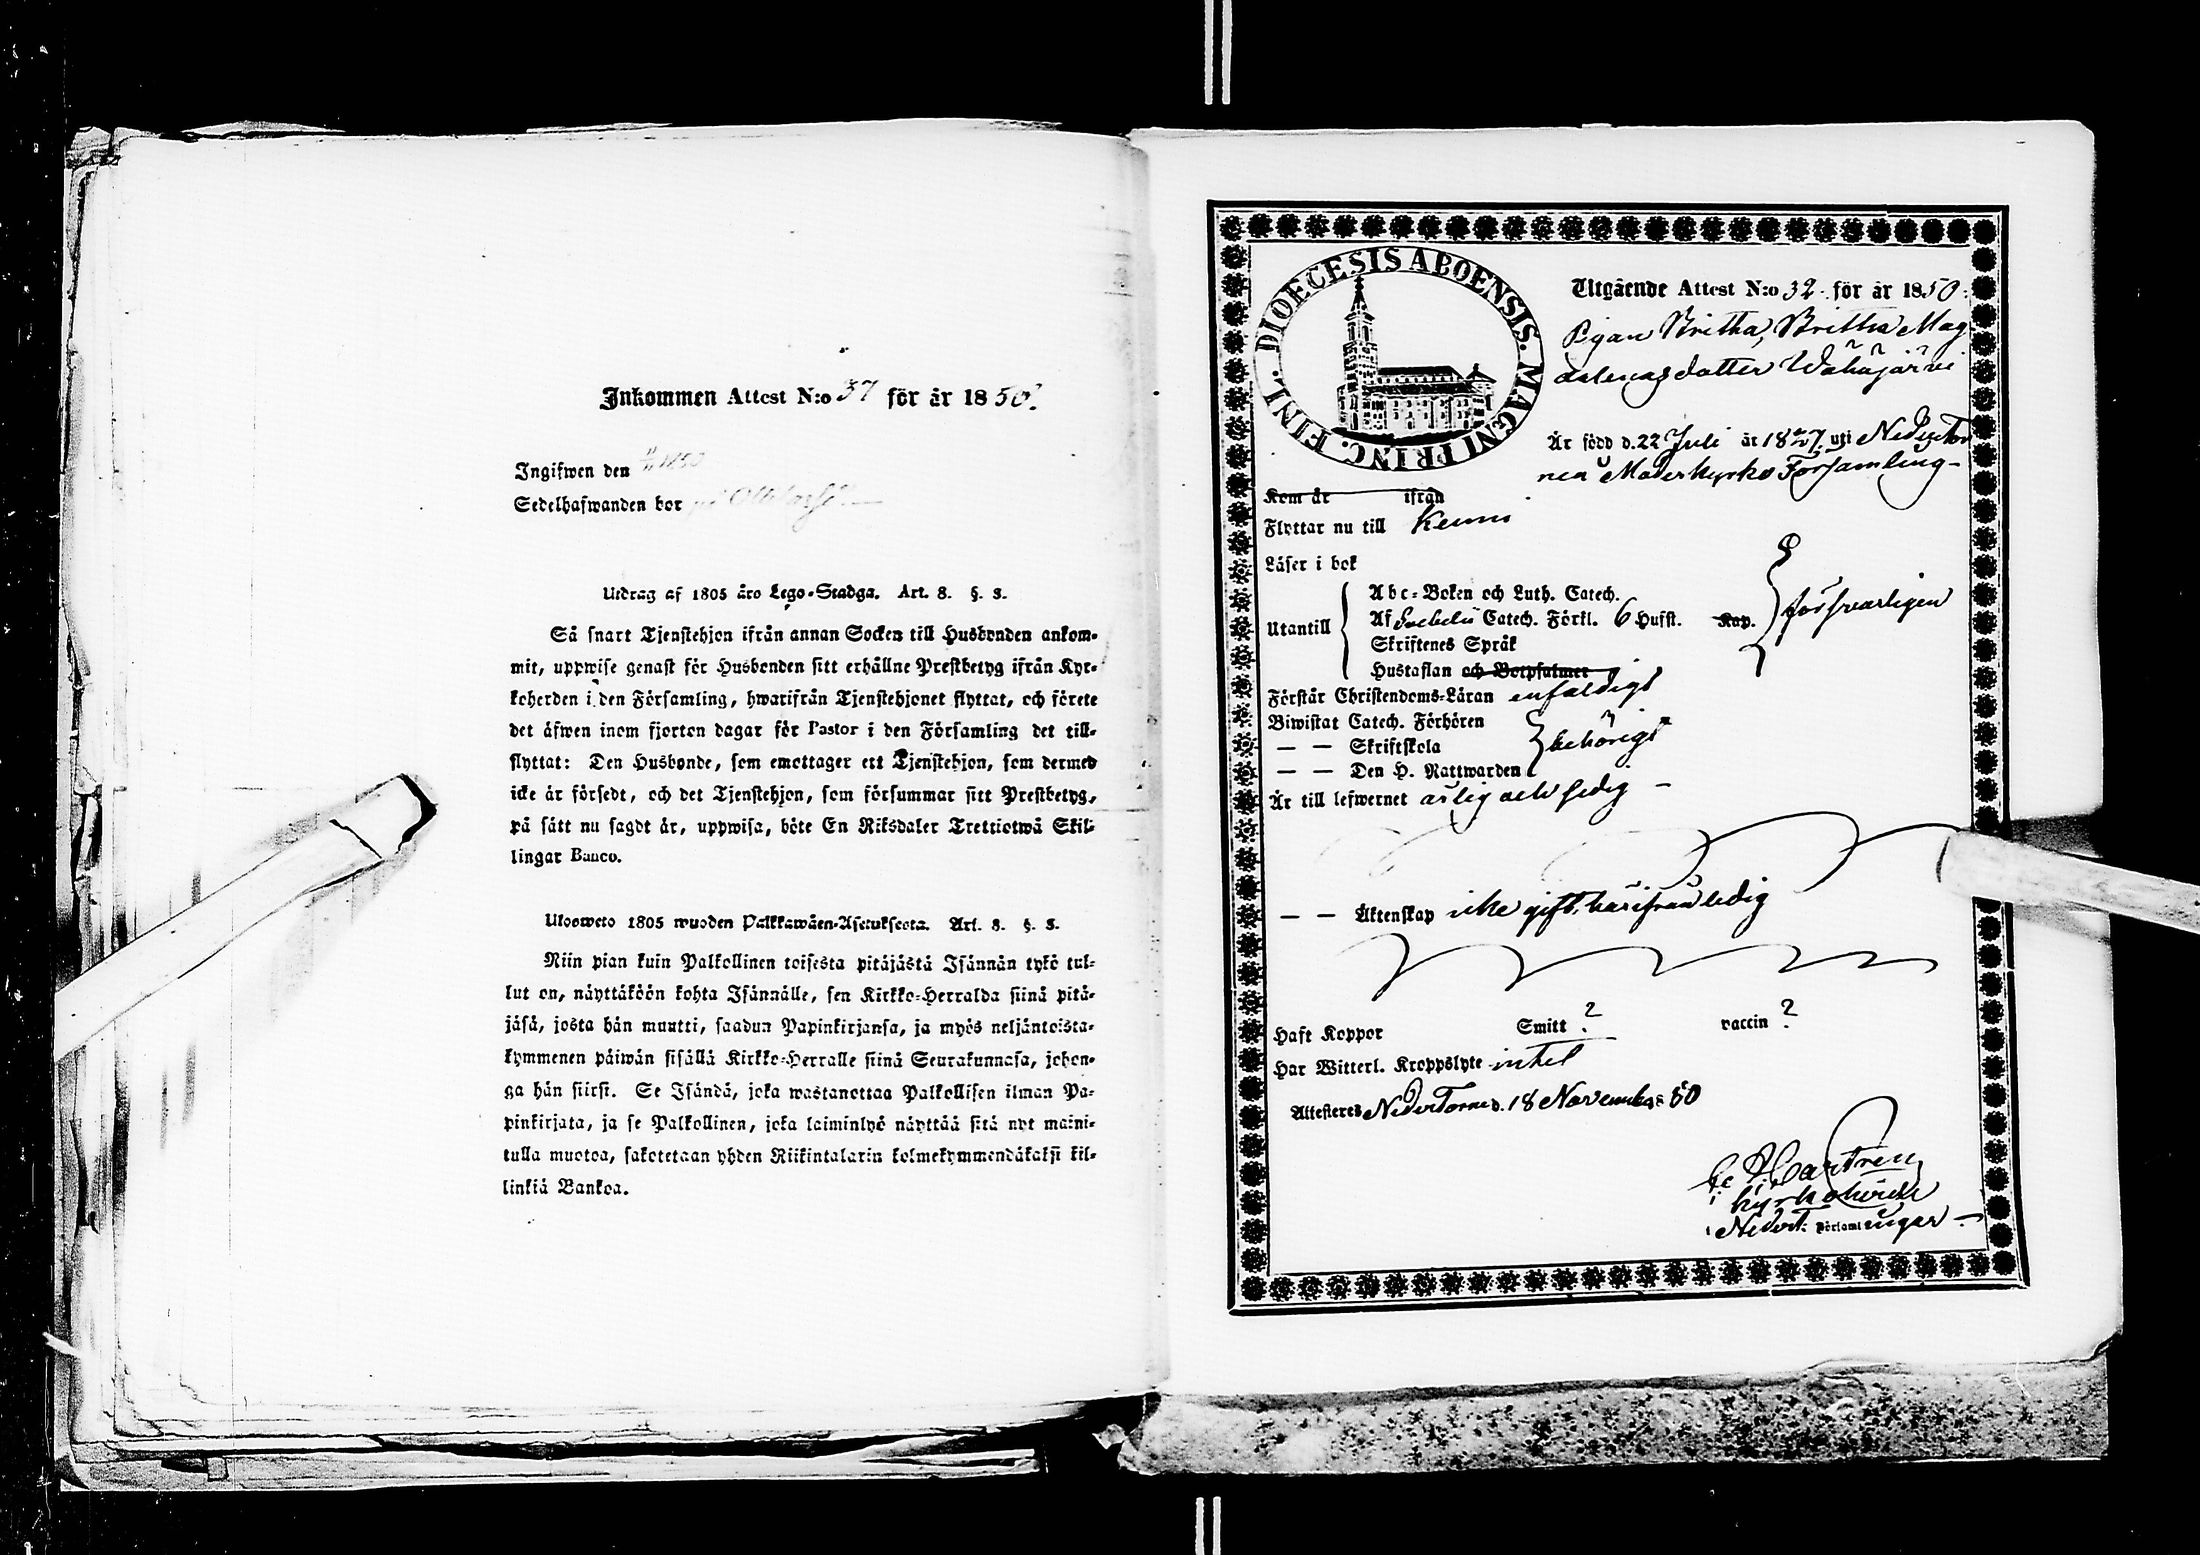 Inkommen Attest N:o 37 för år 1850.
Ingifwen den 1850
Sedelhafwanden bor på
Utdrag af 1805 åro Lego-Stadga. Art. 8. §. 3.
Så snart Tjenstehjon ifrån annan Socken till Husbonden ankom-
mit, uppwise genast för Husbonden sitt erhållne Prestbetyg ifrån Kyr-
koherden i den Församling, hwarifrån Tjenstehjonet flyttat, och förete
det äfwen inom fjorton dagar för Pastor i den Församling det till-
flyttat: Den Husbonde, som emottager ett Tjenstehjon, som dermed
icke är försedt, och det Tjenstehjon, som försummar sitt Prestbetyg,
på sätt nu sagdt är, uppwisa, böte En Riksdaler Trettiotwå Skil-
lingar Banco.
Ulosweto 1805 wuoden Palkkawäen-Asetuksesta. Art. 8. §. 3.
Niin pian kuin Palkollinen toisesta pitäjästä Isännän tykö tul-
lut on, näyttäköön kohta Isännälle, sen Kirkko-Herralda siinä pitä-
jäsä, josta hän muutti, saadun Papinkirjansa, ja myös neljäntoista-
kymmenen päiwän sisällä Kirkko-Herralle siinä Seurakunnasa, johon-
ga hän siirsi. Se Isändä, joka wastanottaa Palkollisen ilman Pa-
pinkirjata, ja se Palkollinen, joka laiminlyö näyttää sitä nyt maini-
tulla muotoa, sakotetaan yhden Riikintalarin kolmekymmendäkaksi kil-
linkiä Bankoa.
DIOECESIS ABOENSIS. MAGNI PRINC. FINL.
Utgående Attest N:o 32 för år 1850.
Pigan Britha, Britha Mag
dalenasdotter Wähäjärvi
Är född d. 22 Juli år 1827 uti NederTor
neå Moderkyrko Församling
Kom år ifrån
Flyttar nu till Kemi
Läser i bok
Utantill
Abc-Boken och Luth. Catech.
Af Svebelii Catech. Förkl. 6 Hufst. Kap.
Skriftenes Språk
Hustaflan och Botpsalmer
försvarligen
Förstår Christendoms-Läran enfaldigt
Biwistat Catech. Förhören
— — Skriftskola
behörigt
— — Den H. Nattwarden
Är till lefwernet ärlig och fredig
— — Äktenskap icke gift, härifrån ledig
Haft Koppor Smitt ? vaccin ?
Har Witterl. Kroppslyte intet
Attesteres NederTorneå d. 18 November 50
Kyrkoherde
i Nedert. Församlingar